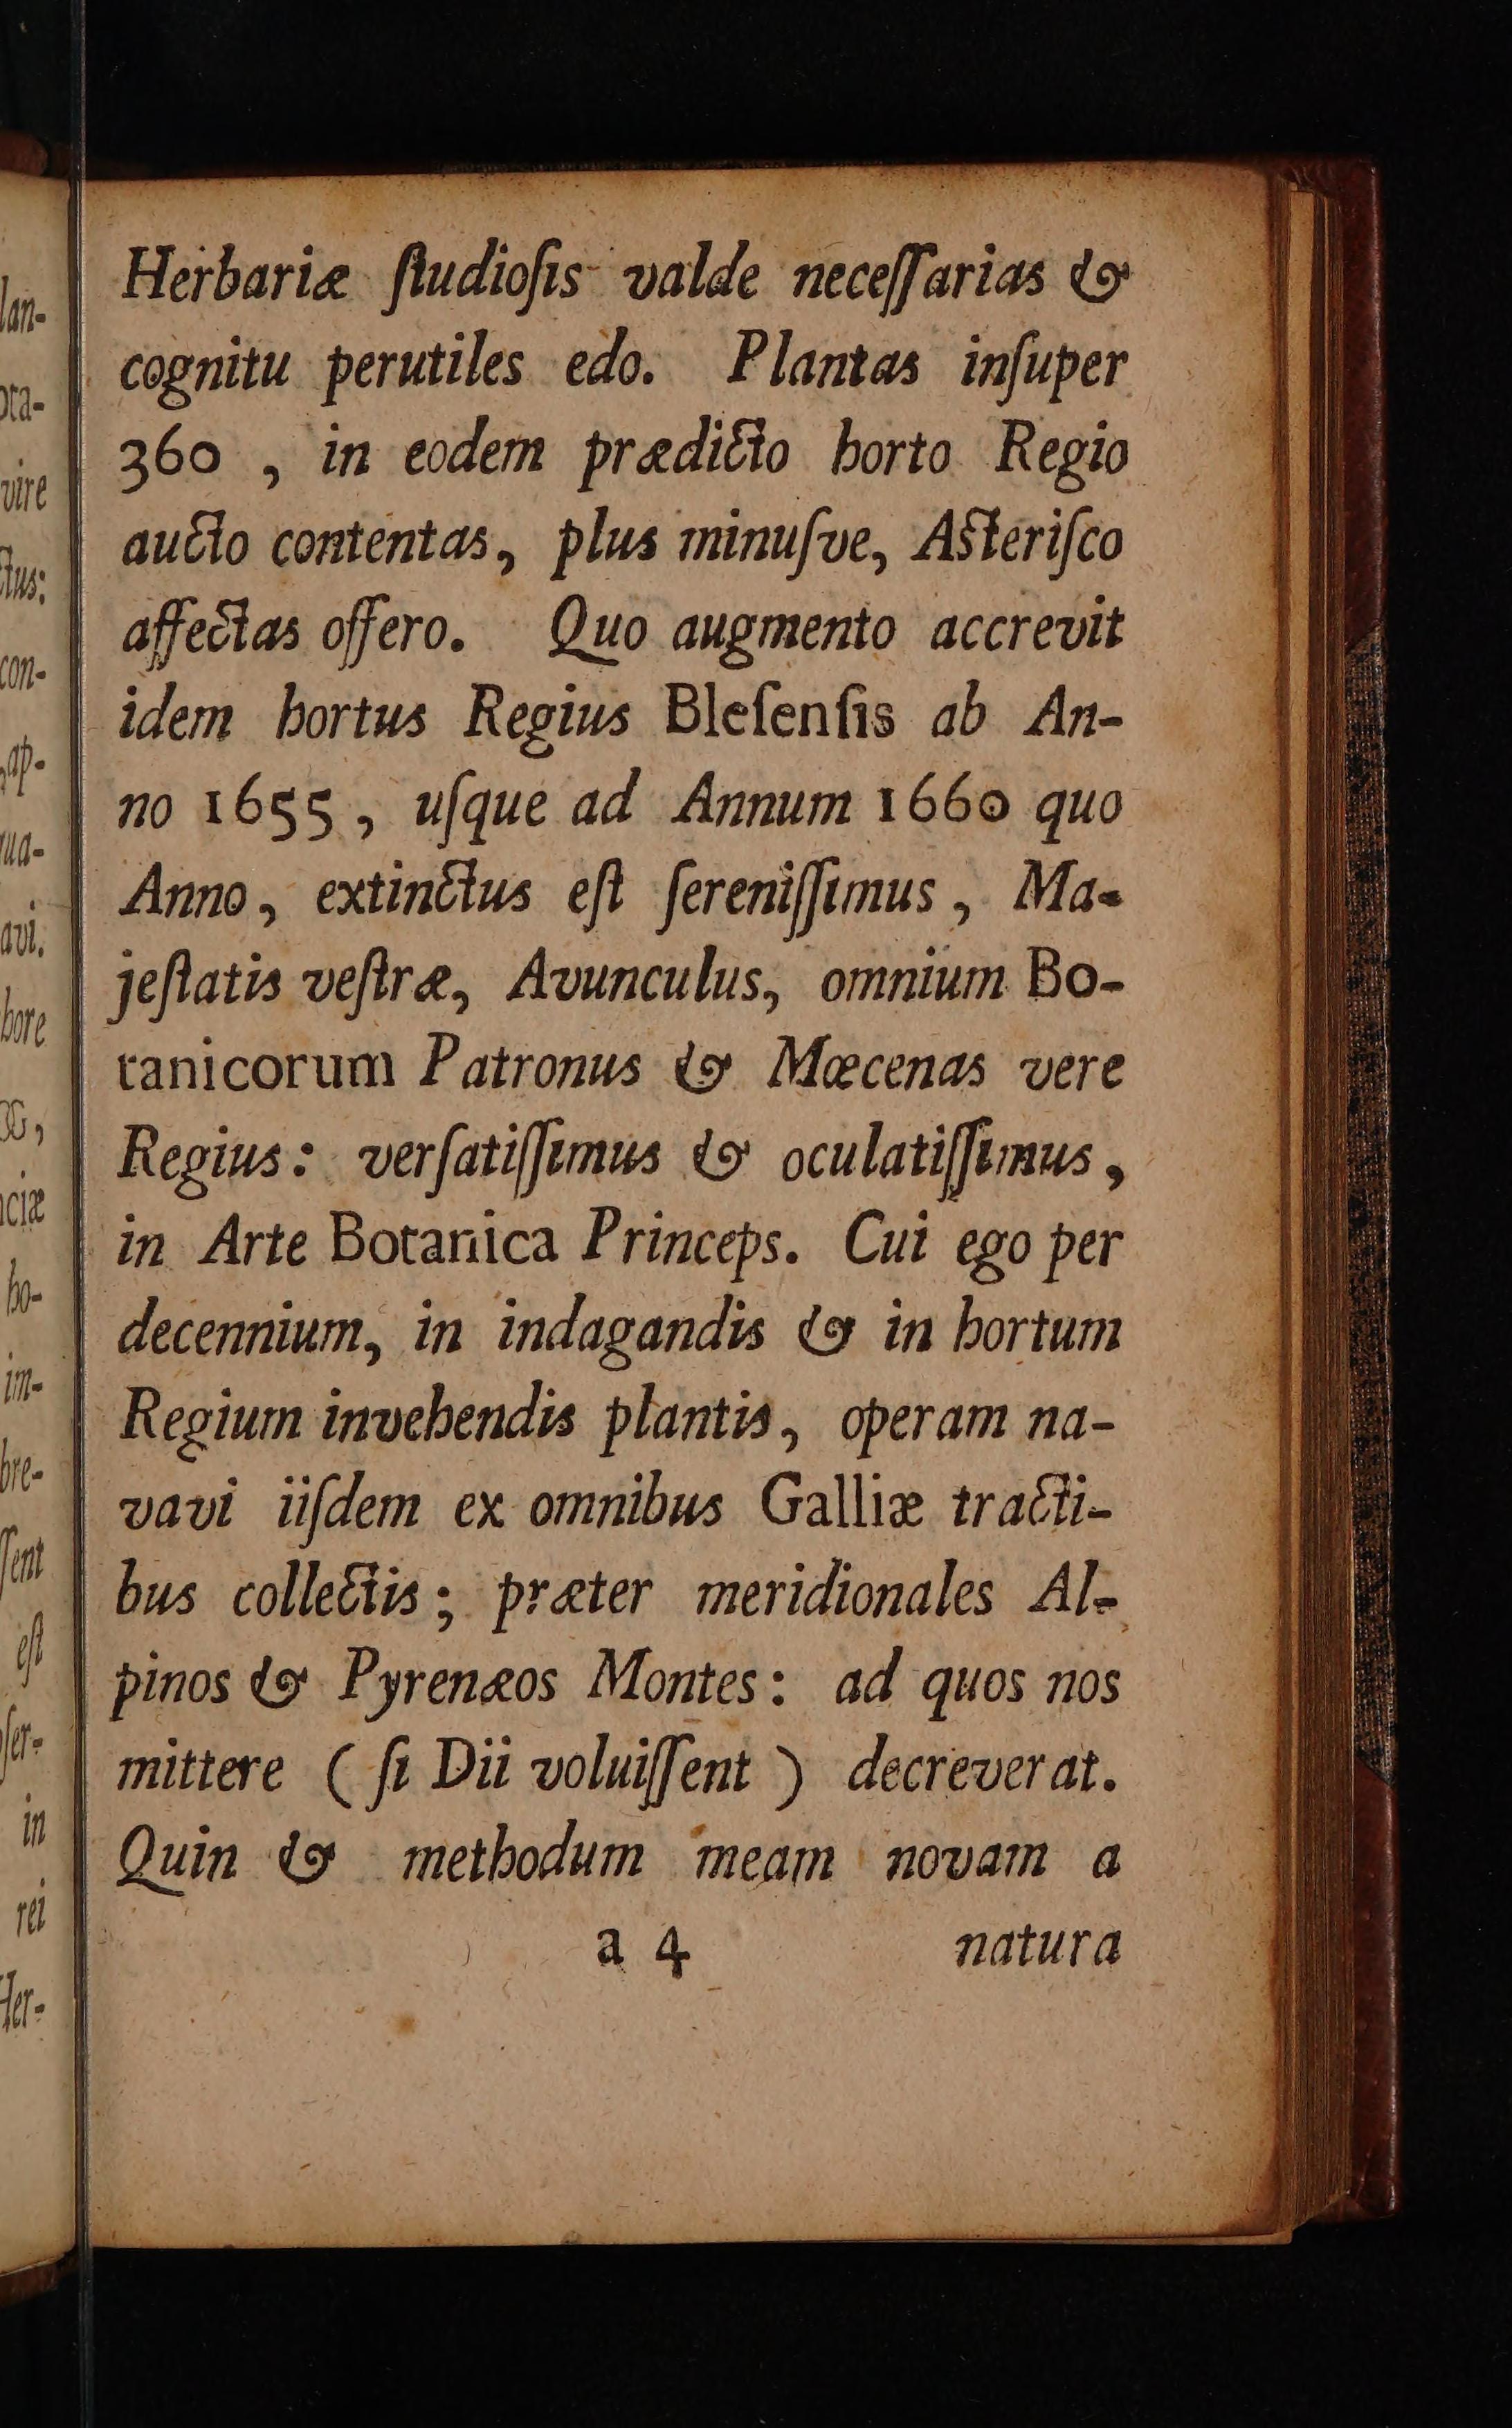 Herbariæ ſtudioſis valde neceſſarias &
cognitu perutiles edo. Plantas inſuper
360 , in eodem prædicto horto Regio
aucto contentas, plus minuſve, Aſteriſco
affectas offero. Quo augmento accrevit
idem hortus Regius Bleſenſis ab An-
no 1655 , uſque ad Annum 1660 quo
Anno , extinctus eſt ſereniſſimus , Ma-
jeſtatis veſtræ, Avunculus, omnium Bo-
tanicorum Patronus & Mœcenas vere
Regius : verſatiſſimus & oculatiſſimus ,
in Arte Botanica Princeps. Cui ego per
decennium, in indagandis & in hortum
Regium invehendis plantis, operam na-
vavi iiſdem ex omnibus Galliæ tracti-
bus collectis ; præter meridionales Al-
pinos & Pyrenæos Montes : ad quos nos
mittere ( ſi Dii voluiſſent ) decreverat.
Quin & methodum meam novam a
a 4 natura